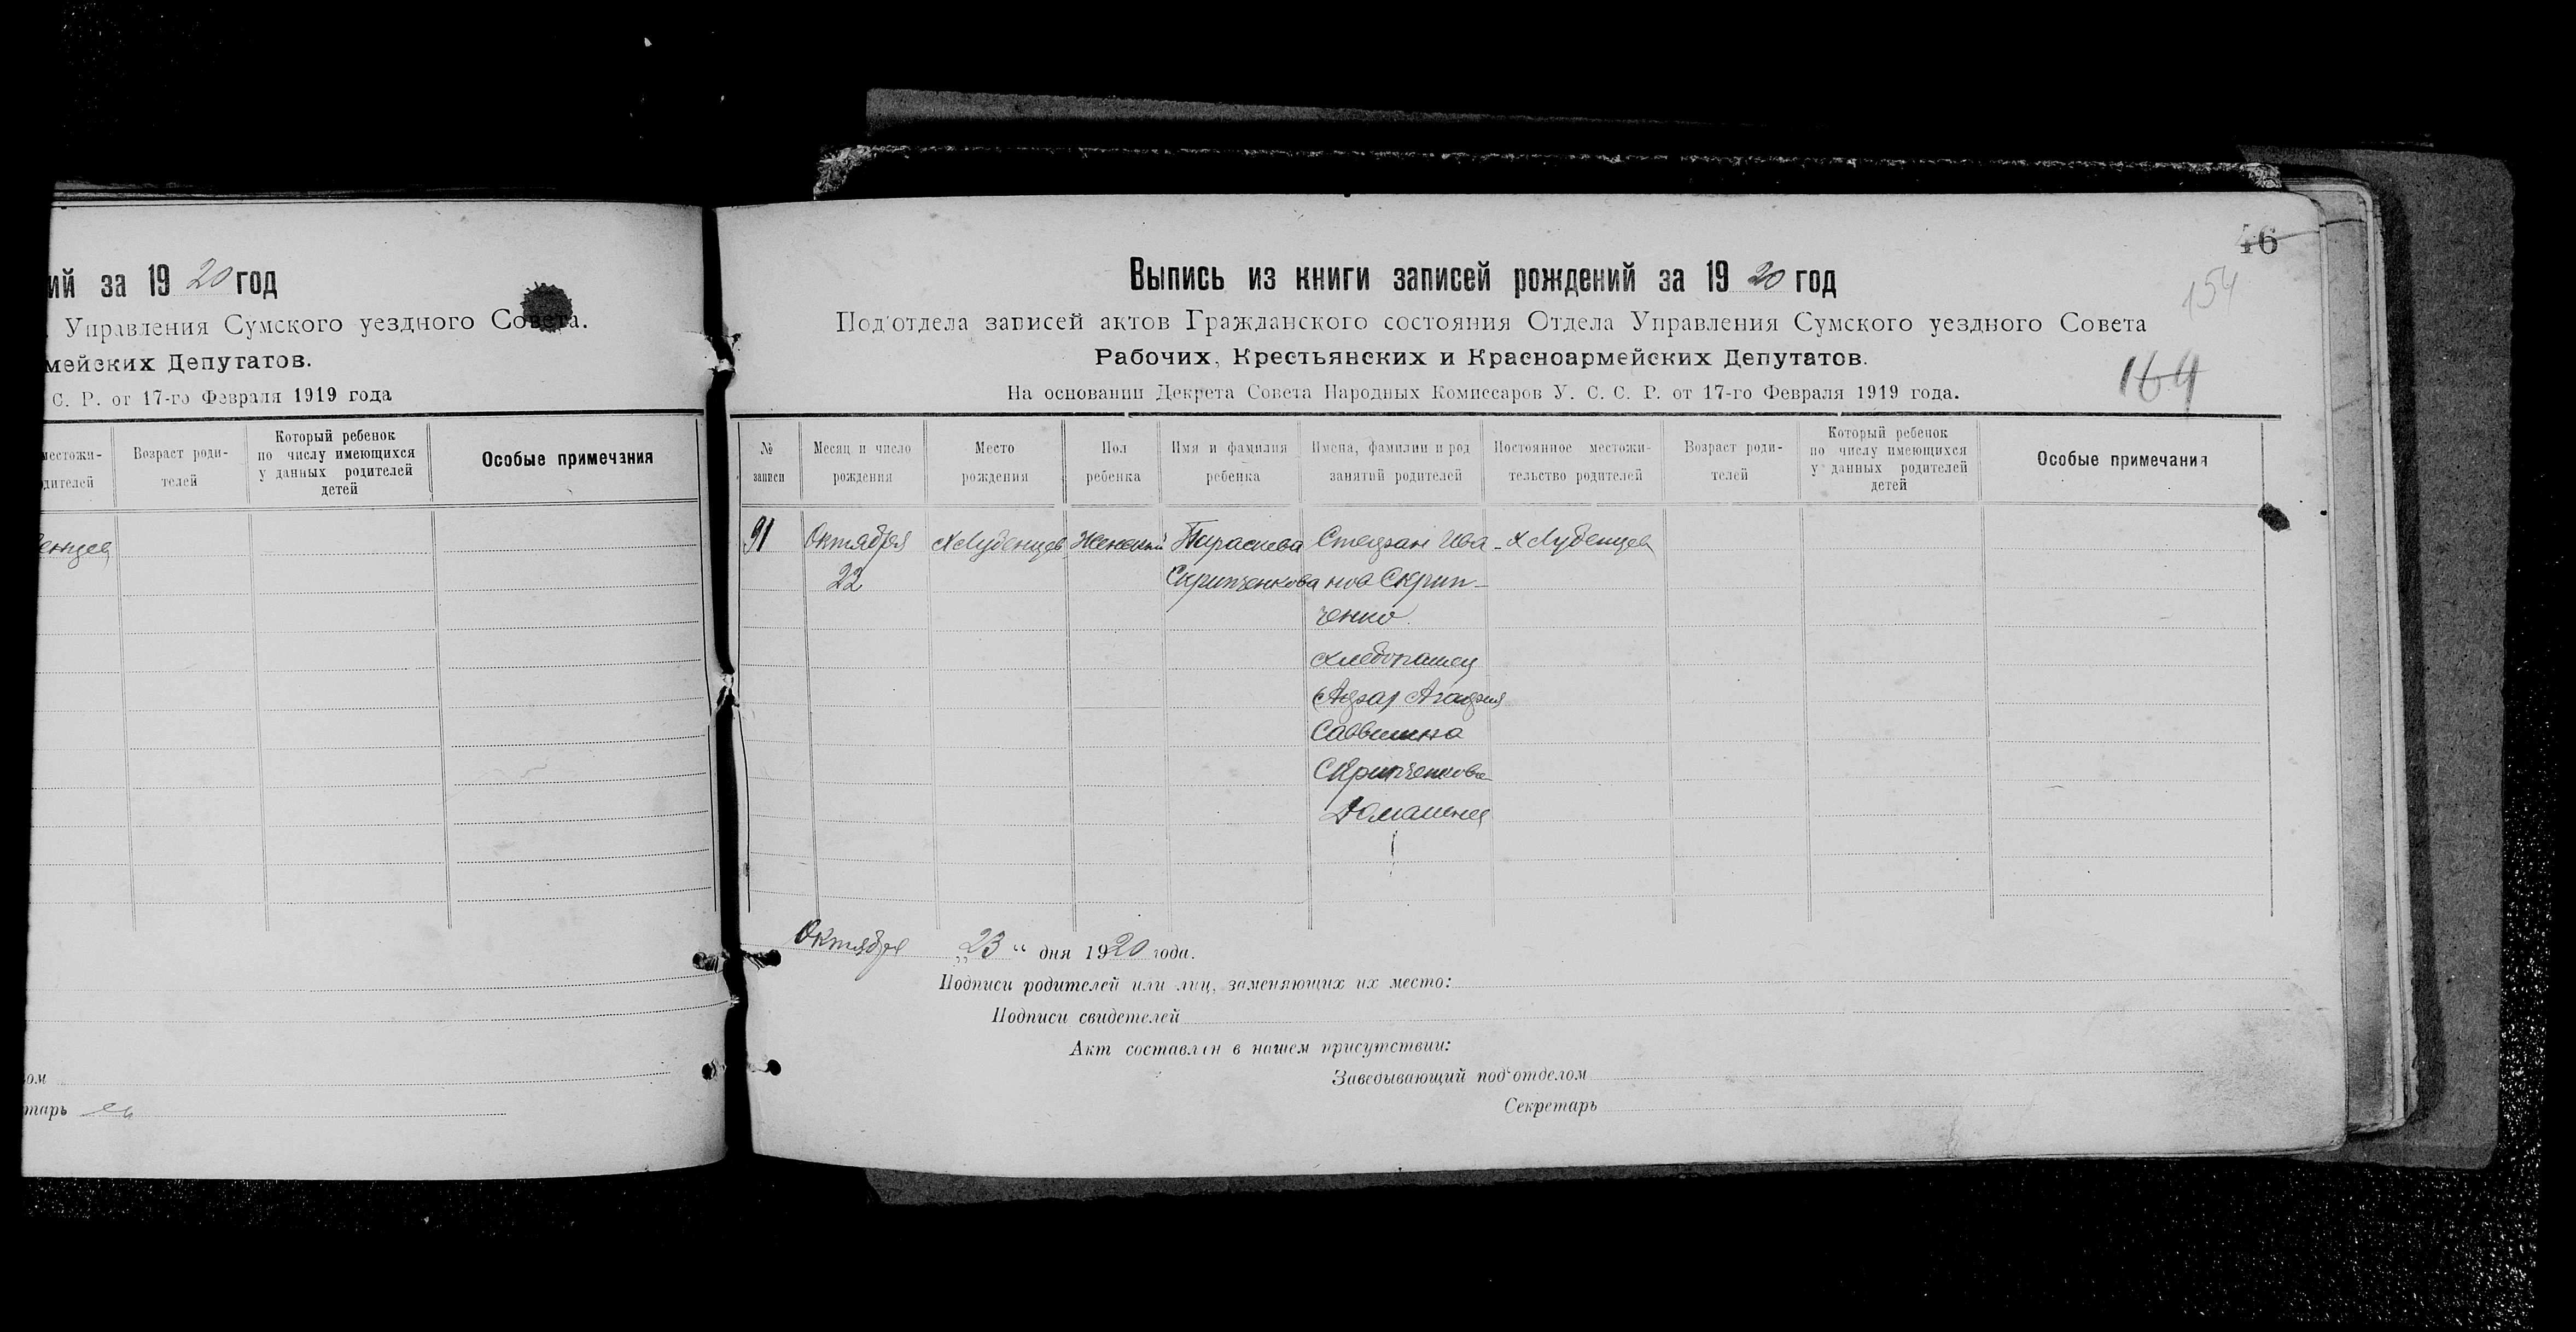 ий за 1920 год
. Управления Сумского уездного Совета.
мейских Депутатов.
С. Р. от 17-го Февраля 1919 года
местожи-
дителей
Возраст роди-
телей
Который ребенок
по числу имеющихся
у данных родителей
детей
Особые примечания
енцев
ом
тарь
46
154
164
Выпись из книги записей рождений за 1920 год
Под'отдела записей актов Гражданского состояния Отдела Управления Сумского уездного Совета
Рабочих, Крестьянских и Красноармейских Депутатов.
На основании Декрета Совета Народных Комиссаров У. С. С. Р. от 17-го Февраля 1919 года.
№
записи
Месяц и число
рождения
Место
рождения
Пол
ребенка
Имя и фамилия
ребенка
Имена, фамилии и род
занятий родителей
Постоянное местожи-
тельство родителей
Возраст роди-
телей
Который ребенок
по числу имеющихся
у данных родителей
детей
Особые примечания
91
Октября
22
х Лубенцев
Женский
Параскева
Скрипченкова
Стефан Ива-
нов Скрип-
ченко
хлебопашец
Агафия
Саввишна
Скрипченкова
Домашнея
х Лубенцев
Октября „23“ дня 1920 года.
Подписи родителей или лиц, заменяющих их место:
Подписи свидетелей
Акт составлен в нашем присутствии:
Заведывающий под'отделом
Секретарь